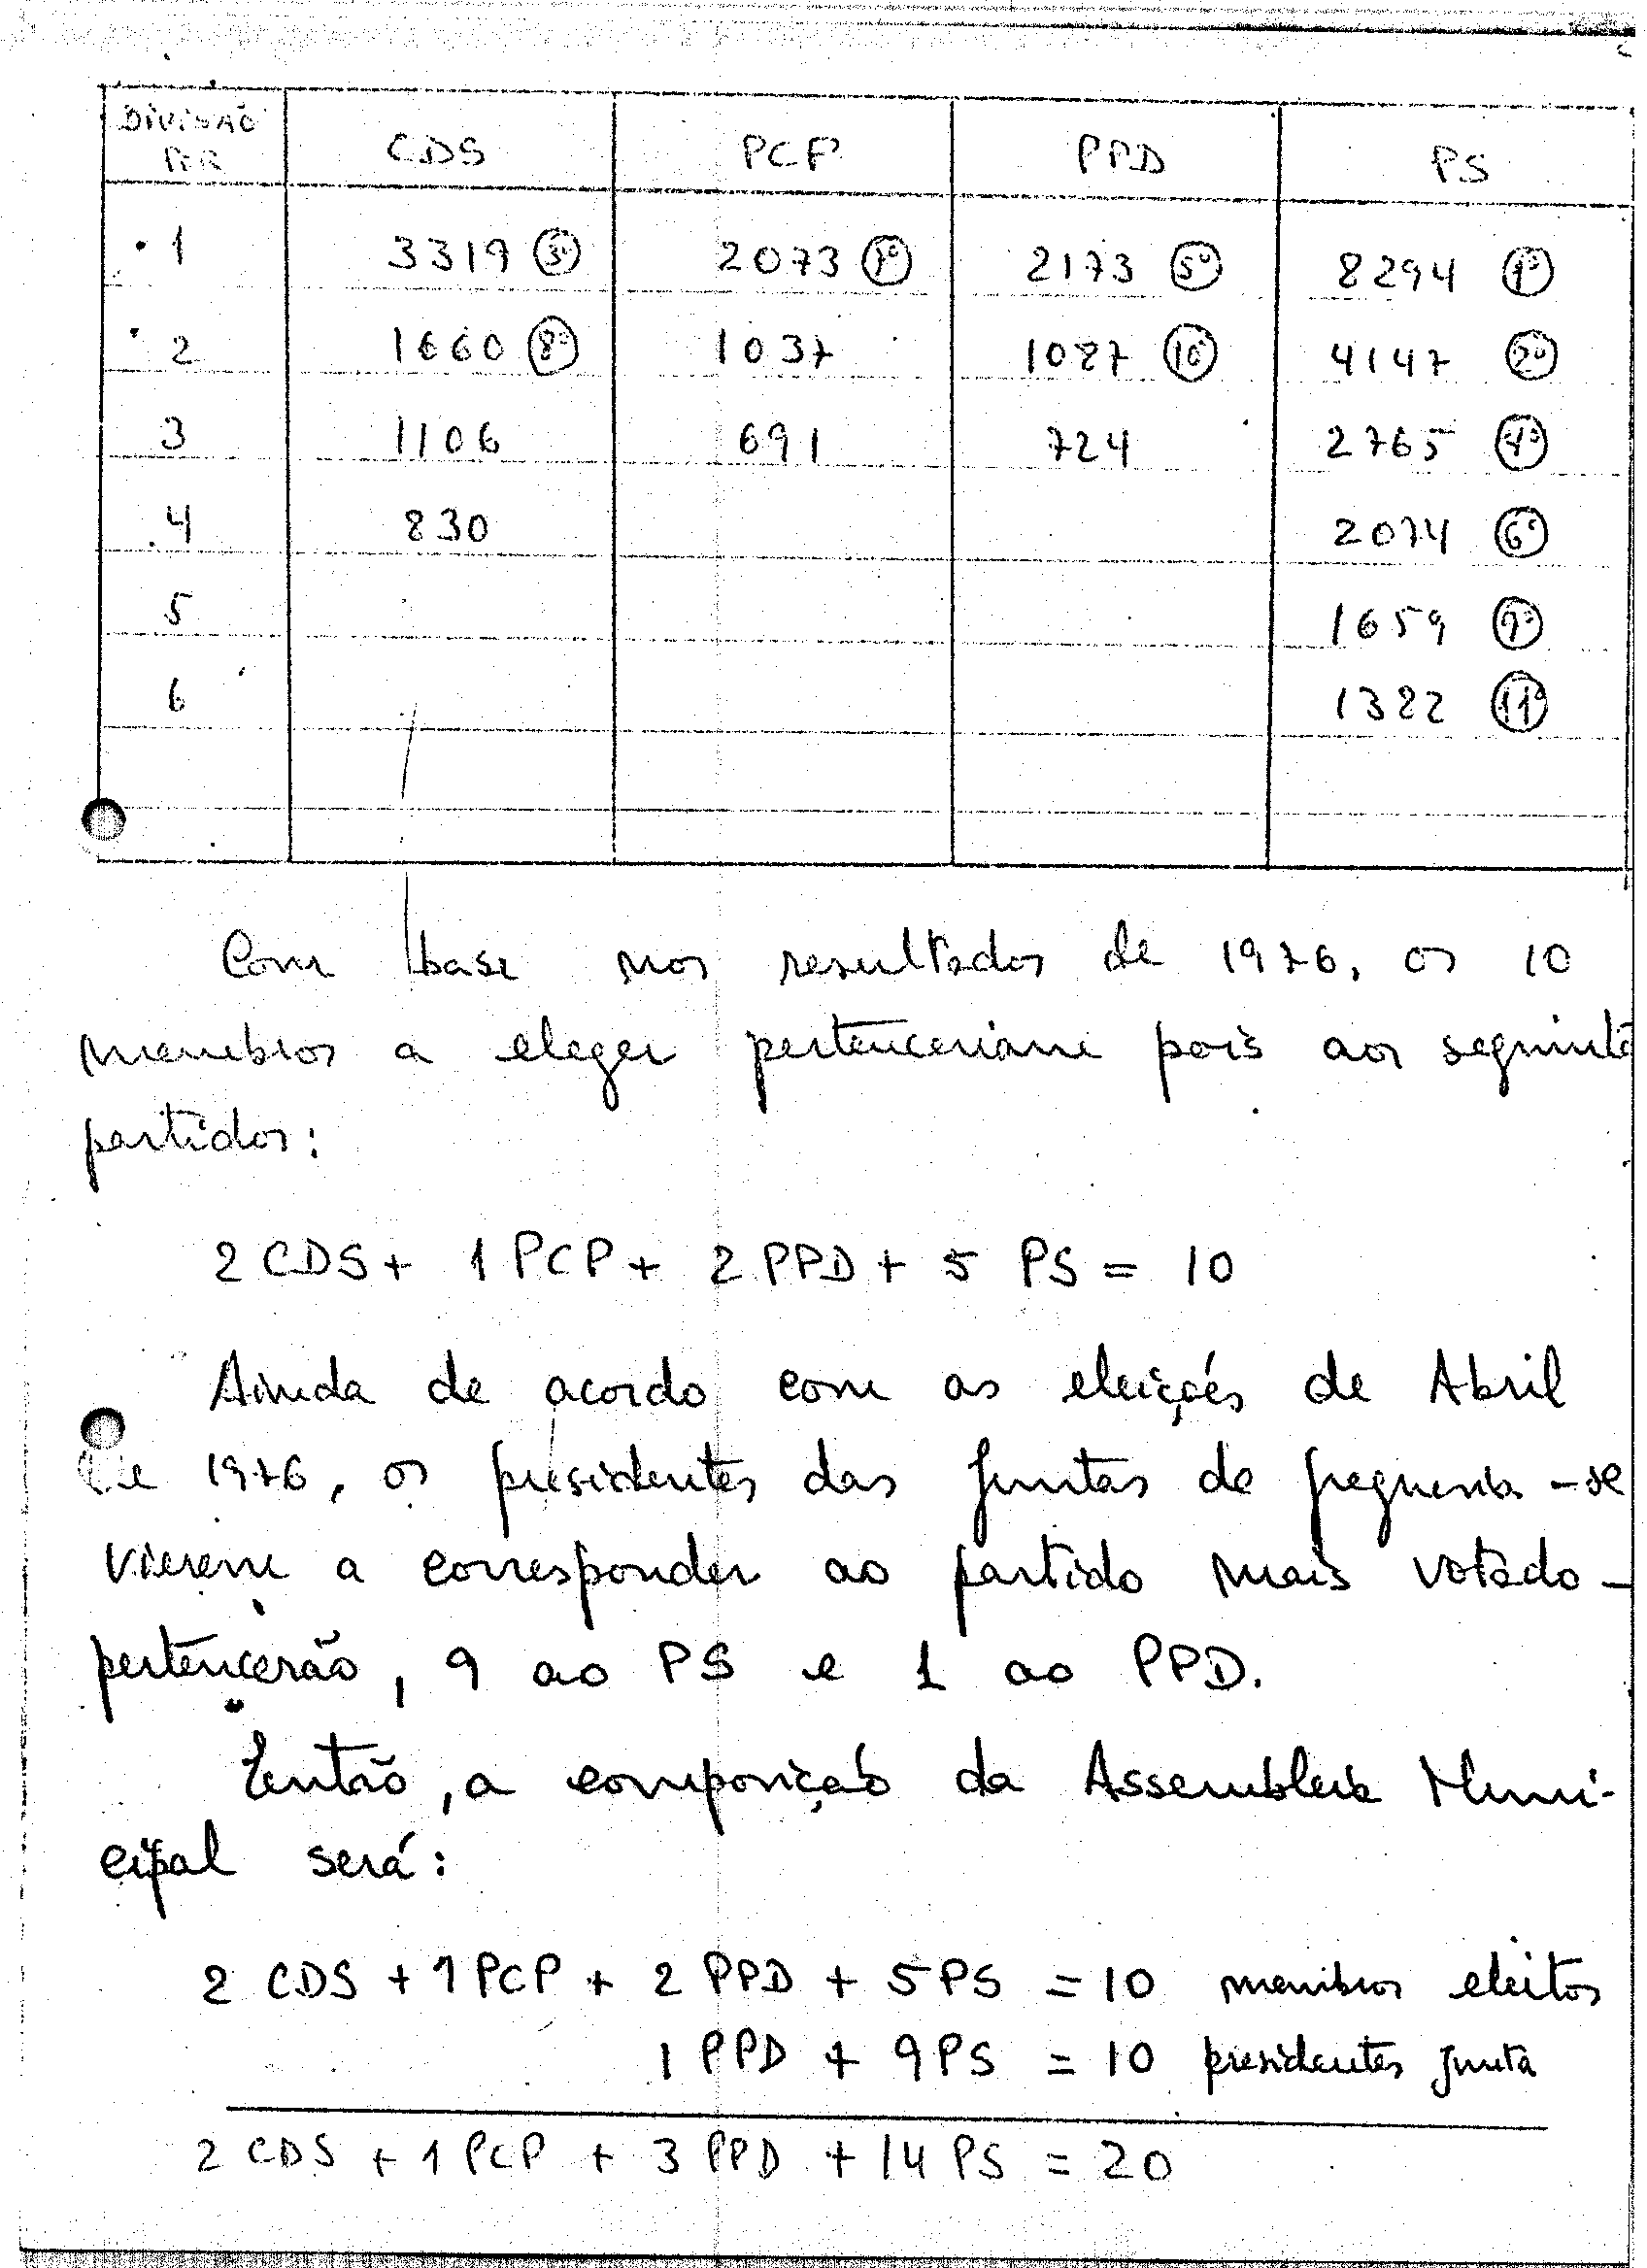 DIVISÃO PER CDS PCP PPD PS
1 3319 3º 2073 7º 2173 5º 8294 1º
2 1660 8º 1037 1087 10º 4147 2º
3 1106 691 724 2765 4º
4 830 2074 6º
5 1659 9º
6 1382 11º
Com base nos resultados de 1976, os 10
membros a eleger pertenceriam pois aos seguinte
partidos:
2 CDS + 1 PCP + 2 PPD + 5 PS = 10
Ainda de acordo com as eleições de Abril
de 1976, os presidentes das juntas de freguesia - se
vierem a corresponder ao partido mais votado -
pertencerão, 9 ao PS e 1 ao PPD.
Então, a composição da Assembleia Muni-
cipal será:
2 CDS + 1 PCP + 2 PPD + 5 PS = 10 membros eleitos
1 PPD + 9 PS = 10 presidentes junta
2 CDS + 1 PCP + 3 PPD + 14 PS = 20